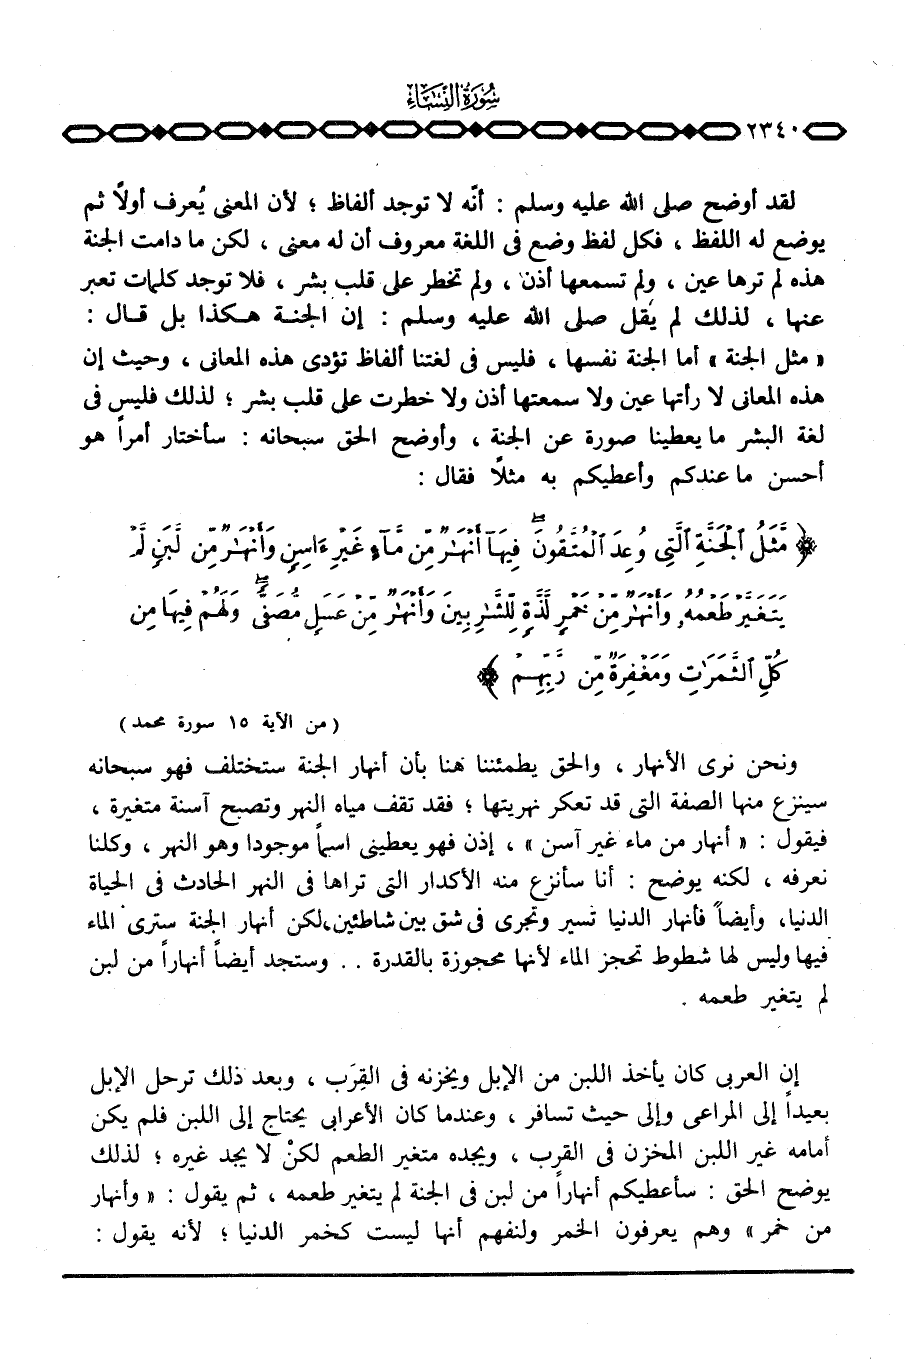 سورة النساء
٢٣٤٠
لقد أوضح صلى الله عليه وسلم : أنّه لا توجد ألفاظ ؛ لأن المعنى يُعرف أولاً ثم
يوضع له اللفظ ، فكل لفظ وضع فى اللغة معروف أن له معنى ، لكن ما دامت الجنة
هذه لم ترها عين ، ولم تسمعها أذن ، ولم تخطر على قلب بشر ، فلا توجد كلمات تعبر
عنها ، لذلك لم يقل صلى الله عليه وسلم : إن الجنة هكذا بل قال :
« مثل الجنة » أما الجنة نفسها ، فليس فى لغتنا ألفاظ تؤدى هذه المعانى ، وحيث إن
هذه المعانى لا رأتها عين ولا سمعتها أذن ولا خطرت على قلب بشر ؛ لذلك فليس فى
لغة البشر ما يعطينا صورة عن الجنة ، وأوضح الحق سبحانه : سأختار أمراً هو
أحسن ما عندكم وأعطيكم به مثلاً فقال :
﴿ مَّثَلُ ٱلْجَنَّةِ ٱلَّتِى وُعِدَ ٱلْمُتَّقُونَ ۖ فِيهَآ أَنْهَٰرٌ مِّن مَّآءٍ غَيْرِ ءَاسِنٍ وَأَنْهَٰرٌ مِّن لَّبَنٍ لَّمْ
يَتَغَيَّرْ طَعْمُهُۥ وَأَنْهَٰرٌ مِّنْ خَمْرٍ لَّذَّةٍ لِّلشَّٰرِبِينَ وَأَنْهَٰرٌ مِّنْ عَسَلٍ مُّصَفًّى ۖ وَلَهُمْ فِيهَا مِن
كُلِّ ٱلثَّمَرَٰتِ وَمَغْفِرَةٌ مِّن رَّبِّهِمْ ﴾
( من الآية ١٥ سورة محمد )
ونحن نرى الأنهار ، والحق يطمئننا هنا بأن أنهار الجنة ستختلف فهو سبحانه
سينزع منها الصفة التى قد تعكر نهريتها ؛ فقد تقف مياه النهر وتصبح آسنة متغيرة ،
فيقول : « أنهار من ماء غير آسن » ، إذن فهو يعطينى اسماً موجودا وهو النهر ، وكلنا
نعرفه ، لكنه يوضح : أنا سأنزع منه الأكدار التى تراها فى النهر الحادث فى الحياة
الدنيا، وأيضاً فأنهار الدنيا تسير وتجرى فى شق بين شاطئين،لكن أنهار الجنة سترى الماء
فيها وليس لها شطوط تحجز الماء لأنها محجوزة بالقدرة . . وستجد أيضاً أنهاراً من لبن
لم يتغير طعمه .
إن العربى كان يأخذ اللبن من الإبل ويخزنه فى القِرَب ، وبعد ذلك ترحل الإبل
بعيداً إلى المراعى وإلى حيث تسافر ، وعندما كان الأعرابى يحتاج إلى اللبن فلم يكن
أمامه غير اللبن المخزن فى القرب ، ويجده متغير الطعم لكنْ لا يجد غيره ؛ لذلك
يوضح الحق : سأعطيكم أنهاراً من لبن فى الجنة لم يتغير طعمه ، ثم يقول : « وأنهار
من خمر » وهم يعرفون الخمر ولنفهم أنها ليست كخمر الدنيا ؛ لأنه يقول :